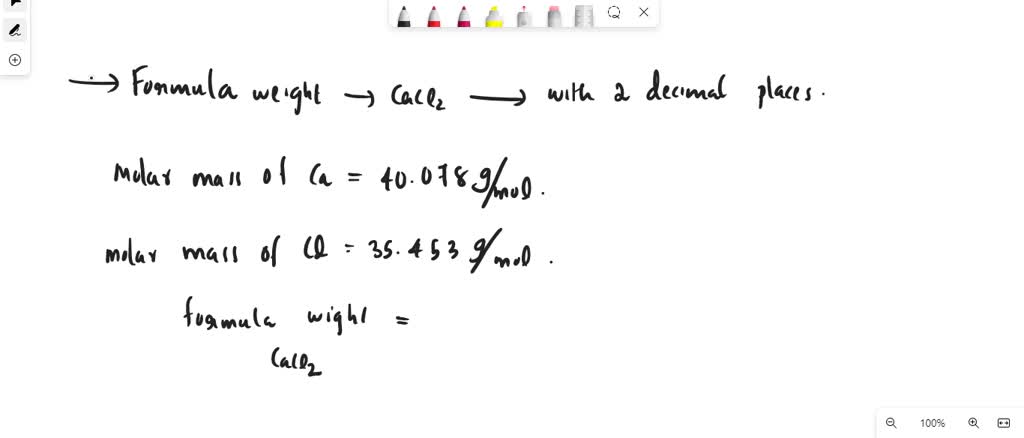 → Formula weight → CaCl2 → with 2 decimal places.
Molar mass of Ca = 40.078 g/mol.
molar mass of Cl = 35.453 g/mol.
formula wight =
CaCl2
100%